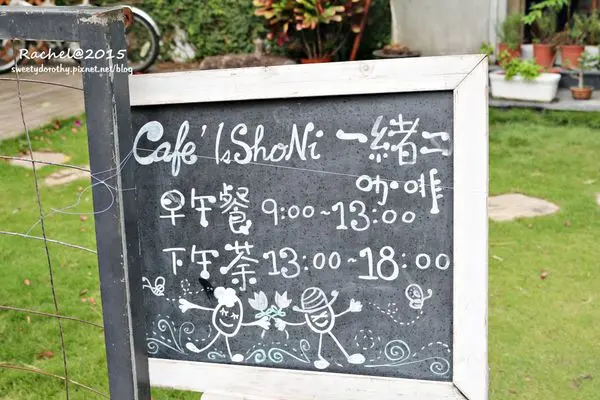 Rachel@2015
sweetyday.pixnet.net/blog
Café IsShoNi 一緒二
咖啡
早午餐 9:00~13:00
下午茶 13:00~18:00